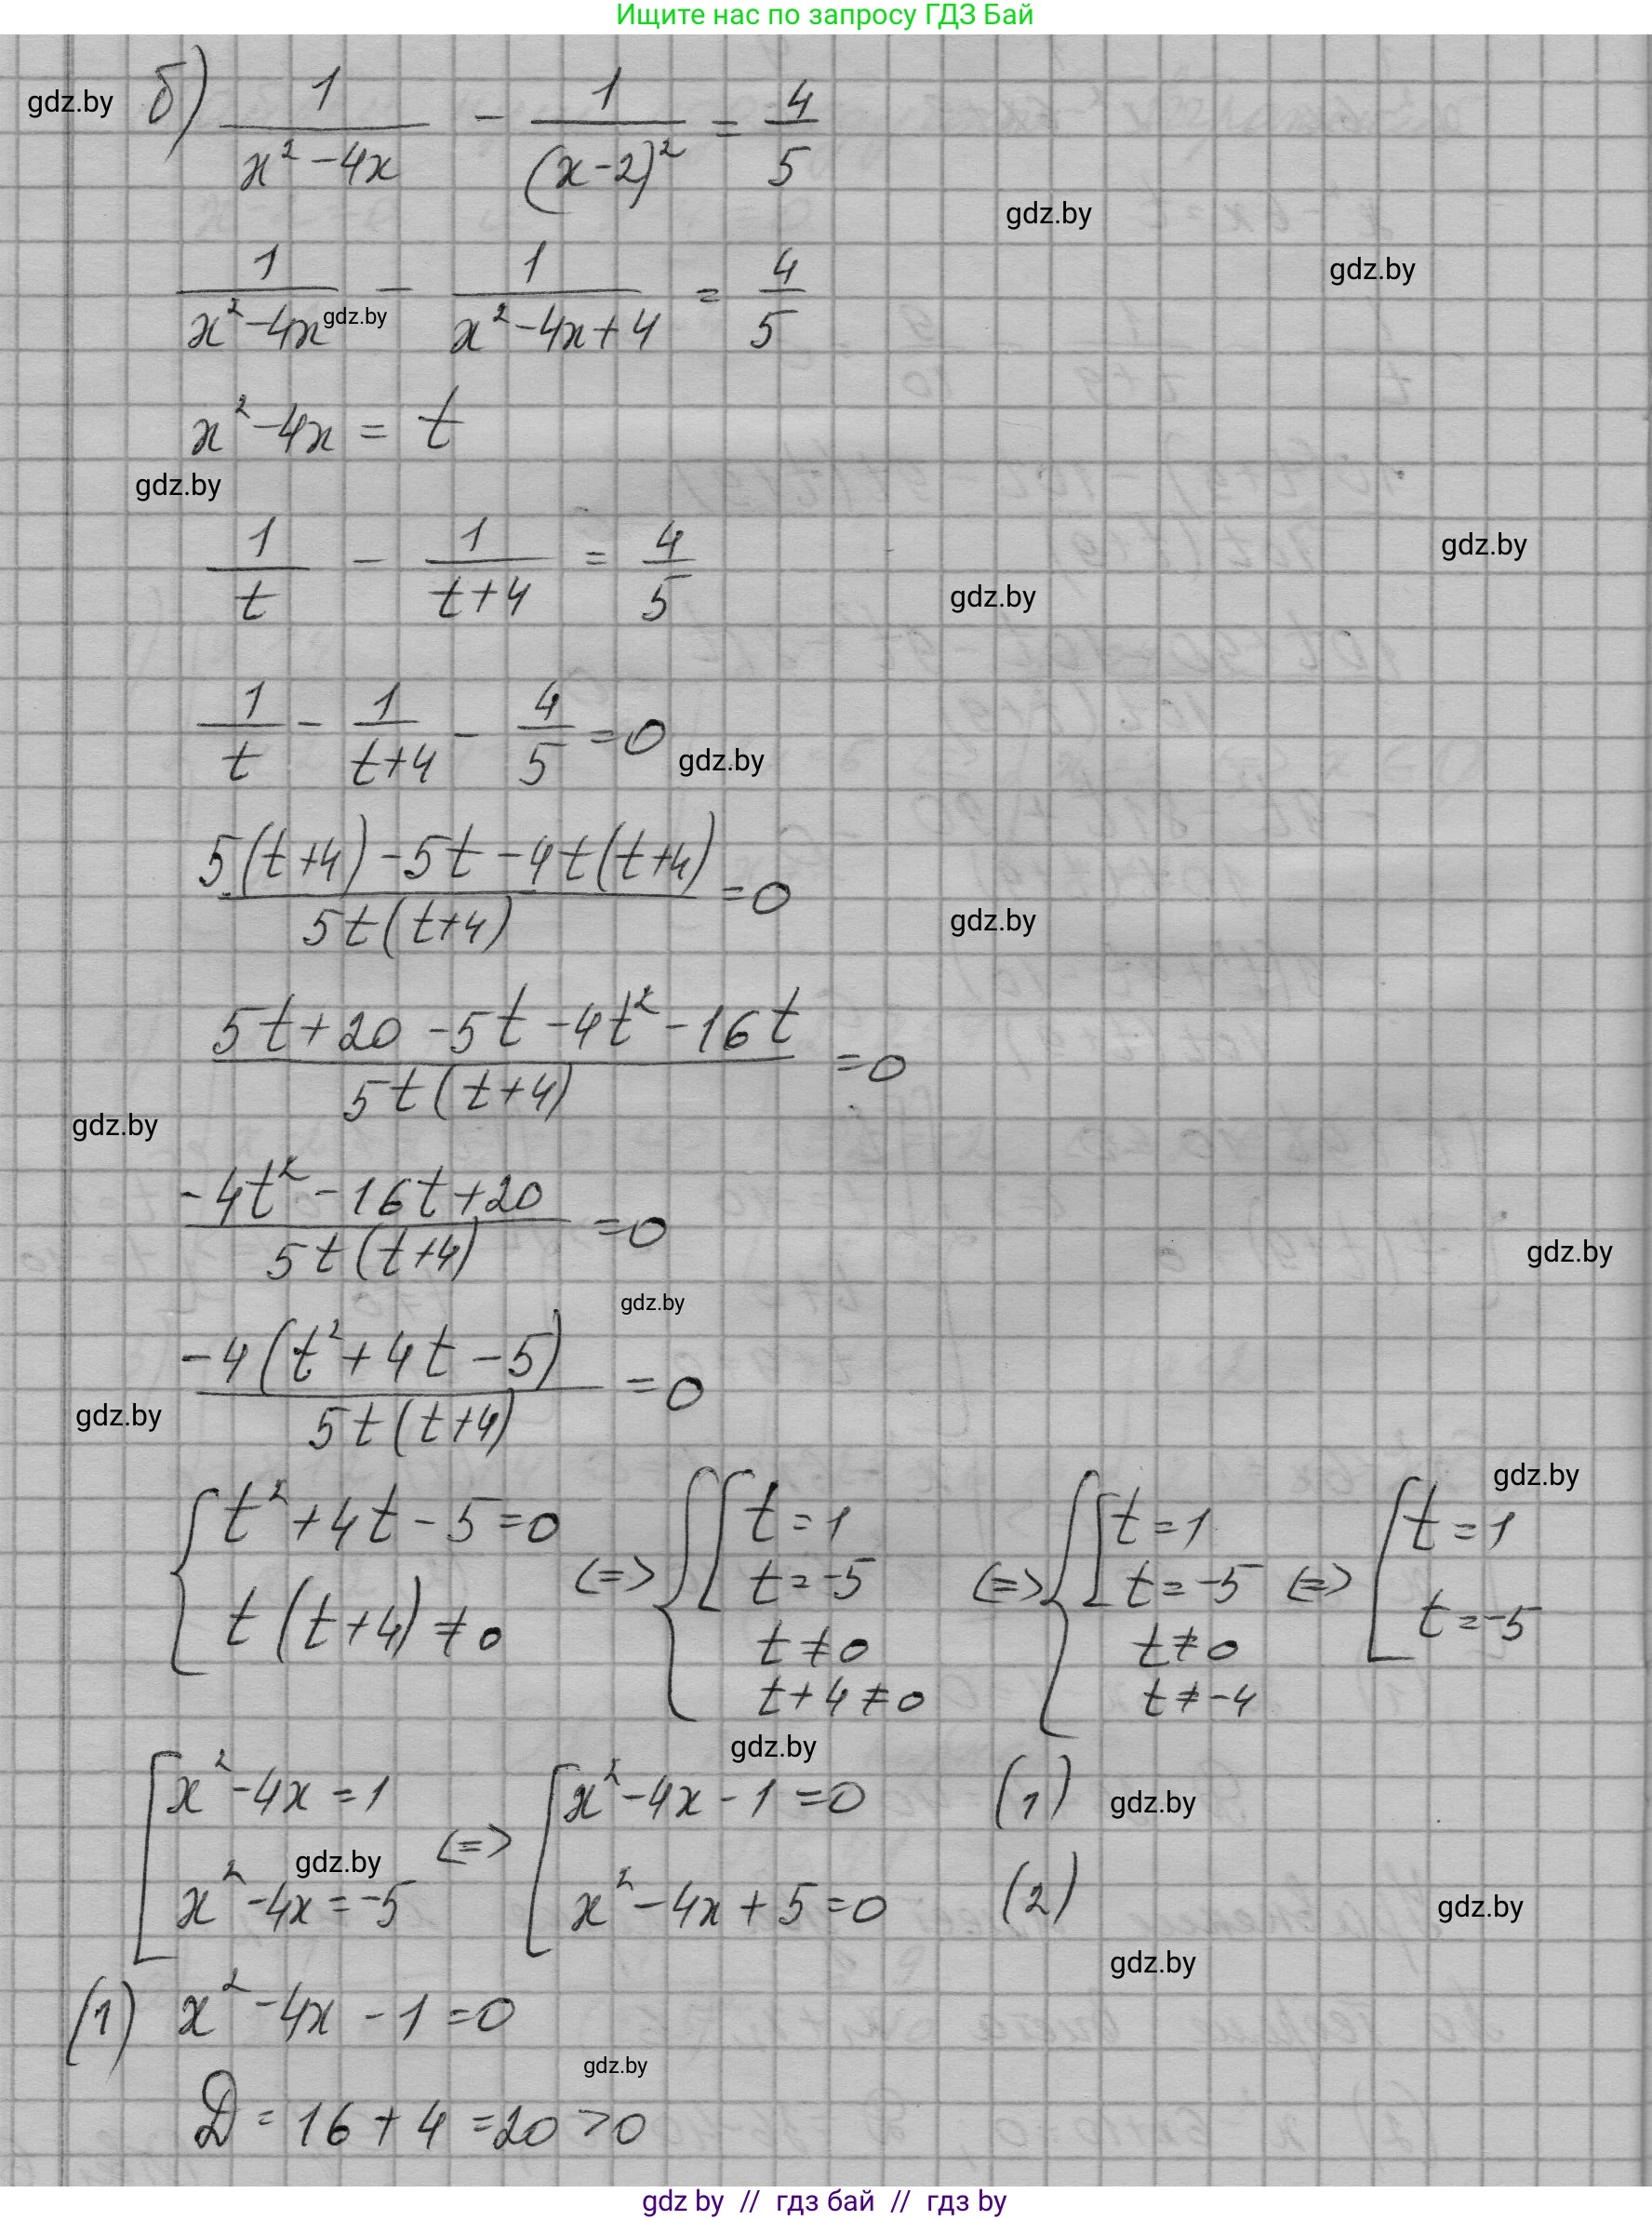 Ищите нас по запросу ГДЗ Бай
gdz.by
б) 1/(x² - 4x) - 1/(x-2)² = 4/5
gdz.by
gdz.by
1/(x² - 4x) - 1/(x² - 4x + 4) = 4/5
gdz.by
x² - 4x = t
gdz.by
1/t - 1/(t+4) = 4/5
gdz.by
gdz.by
1/t - 1/(t+4) - 4/5 = 0
gdz.by
(5(t+4) - 5t - 4t(t+4))/(5t(t+4)) = 0
gdz.by
(5t + 20 - 5t - 4t² - 16t)/(5t(t+4)) = 0
gdz.by
(-4t² - 16t + 20)/(5t(t+4)) = 0
gdz.by
gdz.by
(-4(t² + 4t - 5))/(5t(t+4)) = 0
gdz.by
gdz.by
{ t² + 4t - 5 = 0 <=> { [ t = 1 <=> { [ t = 1 <=> [ t = 1
t = -5 t = -5 t = -5
t(t+4) ≠ 0 t ≠ 0 t ≠ 0
t + 4 ≠ 0 t ≠ -4
gdz.by
[ x² - 4x = 1 <=> [ x² - 4x - 1 = 0 (1)
gdz.by
gdz.by
x² - 4x = -5 x² - 4x + 5 = 0 (2)
gdz.by
gdz.by
(1) x² - 4x - 1 = 0
gdz.by
D = 16 + 4 = 20 > 0
gdz by // гдз бай // гдз by